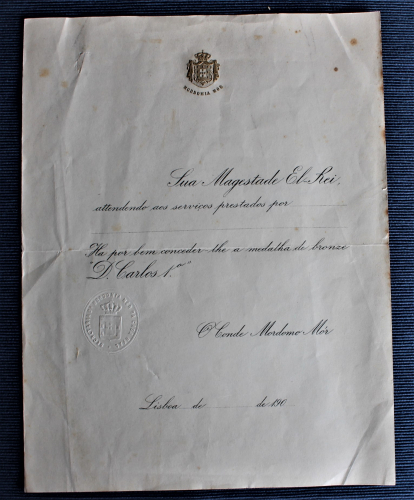 MORDOMIA MÓR
Sua Magestade El-Rei,
attendendo aos serviços prestados por
Ha por bem conceder-lhe a medalha de bronze
"D. Carlos 1.º"
O Conde Mordomo Mór
Lisboa de de 190